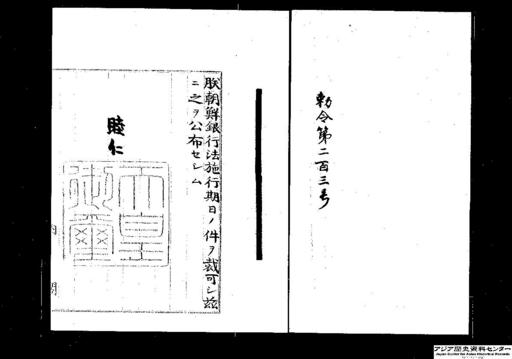 勅令第二百三号
朕朝鮮銀行法施行期日ノ件ヲ裁可シ茲
ニ之ヲ公布セシム
睦仁
天皇
御璽
内
閣
アジア歴史資料センター
Japan Center for Asian Historical Records